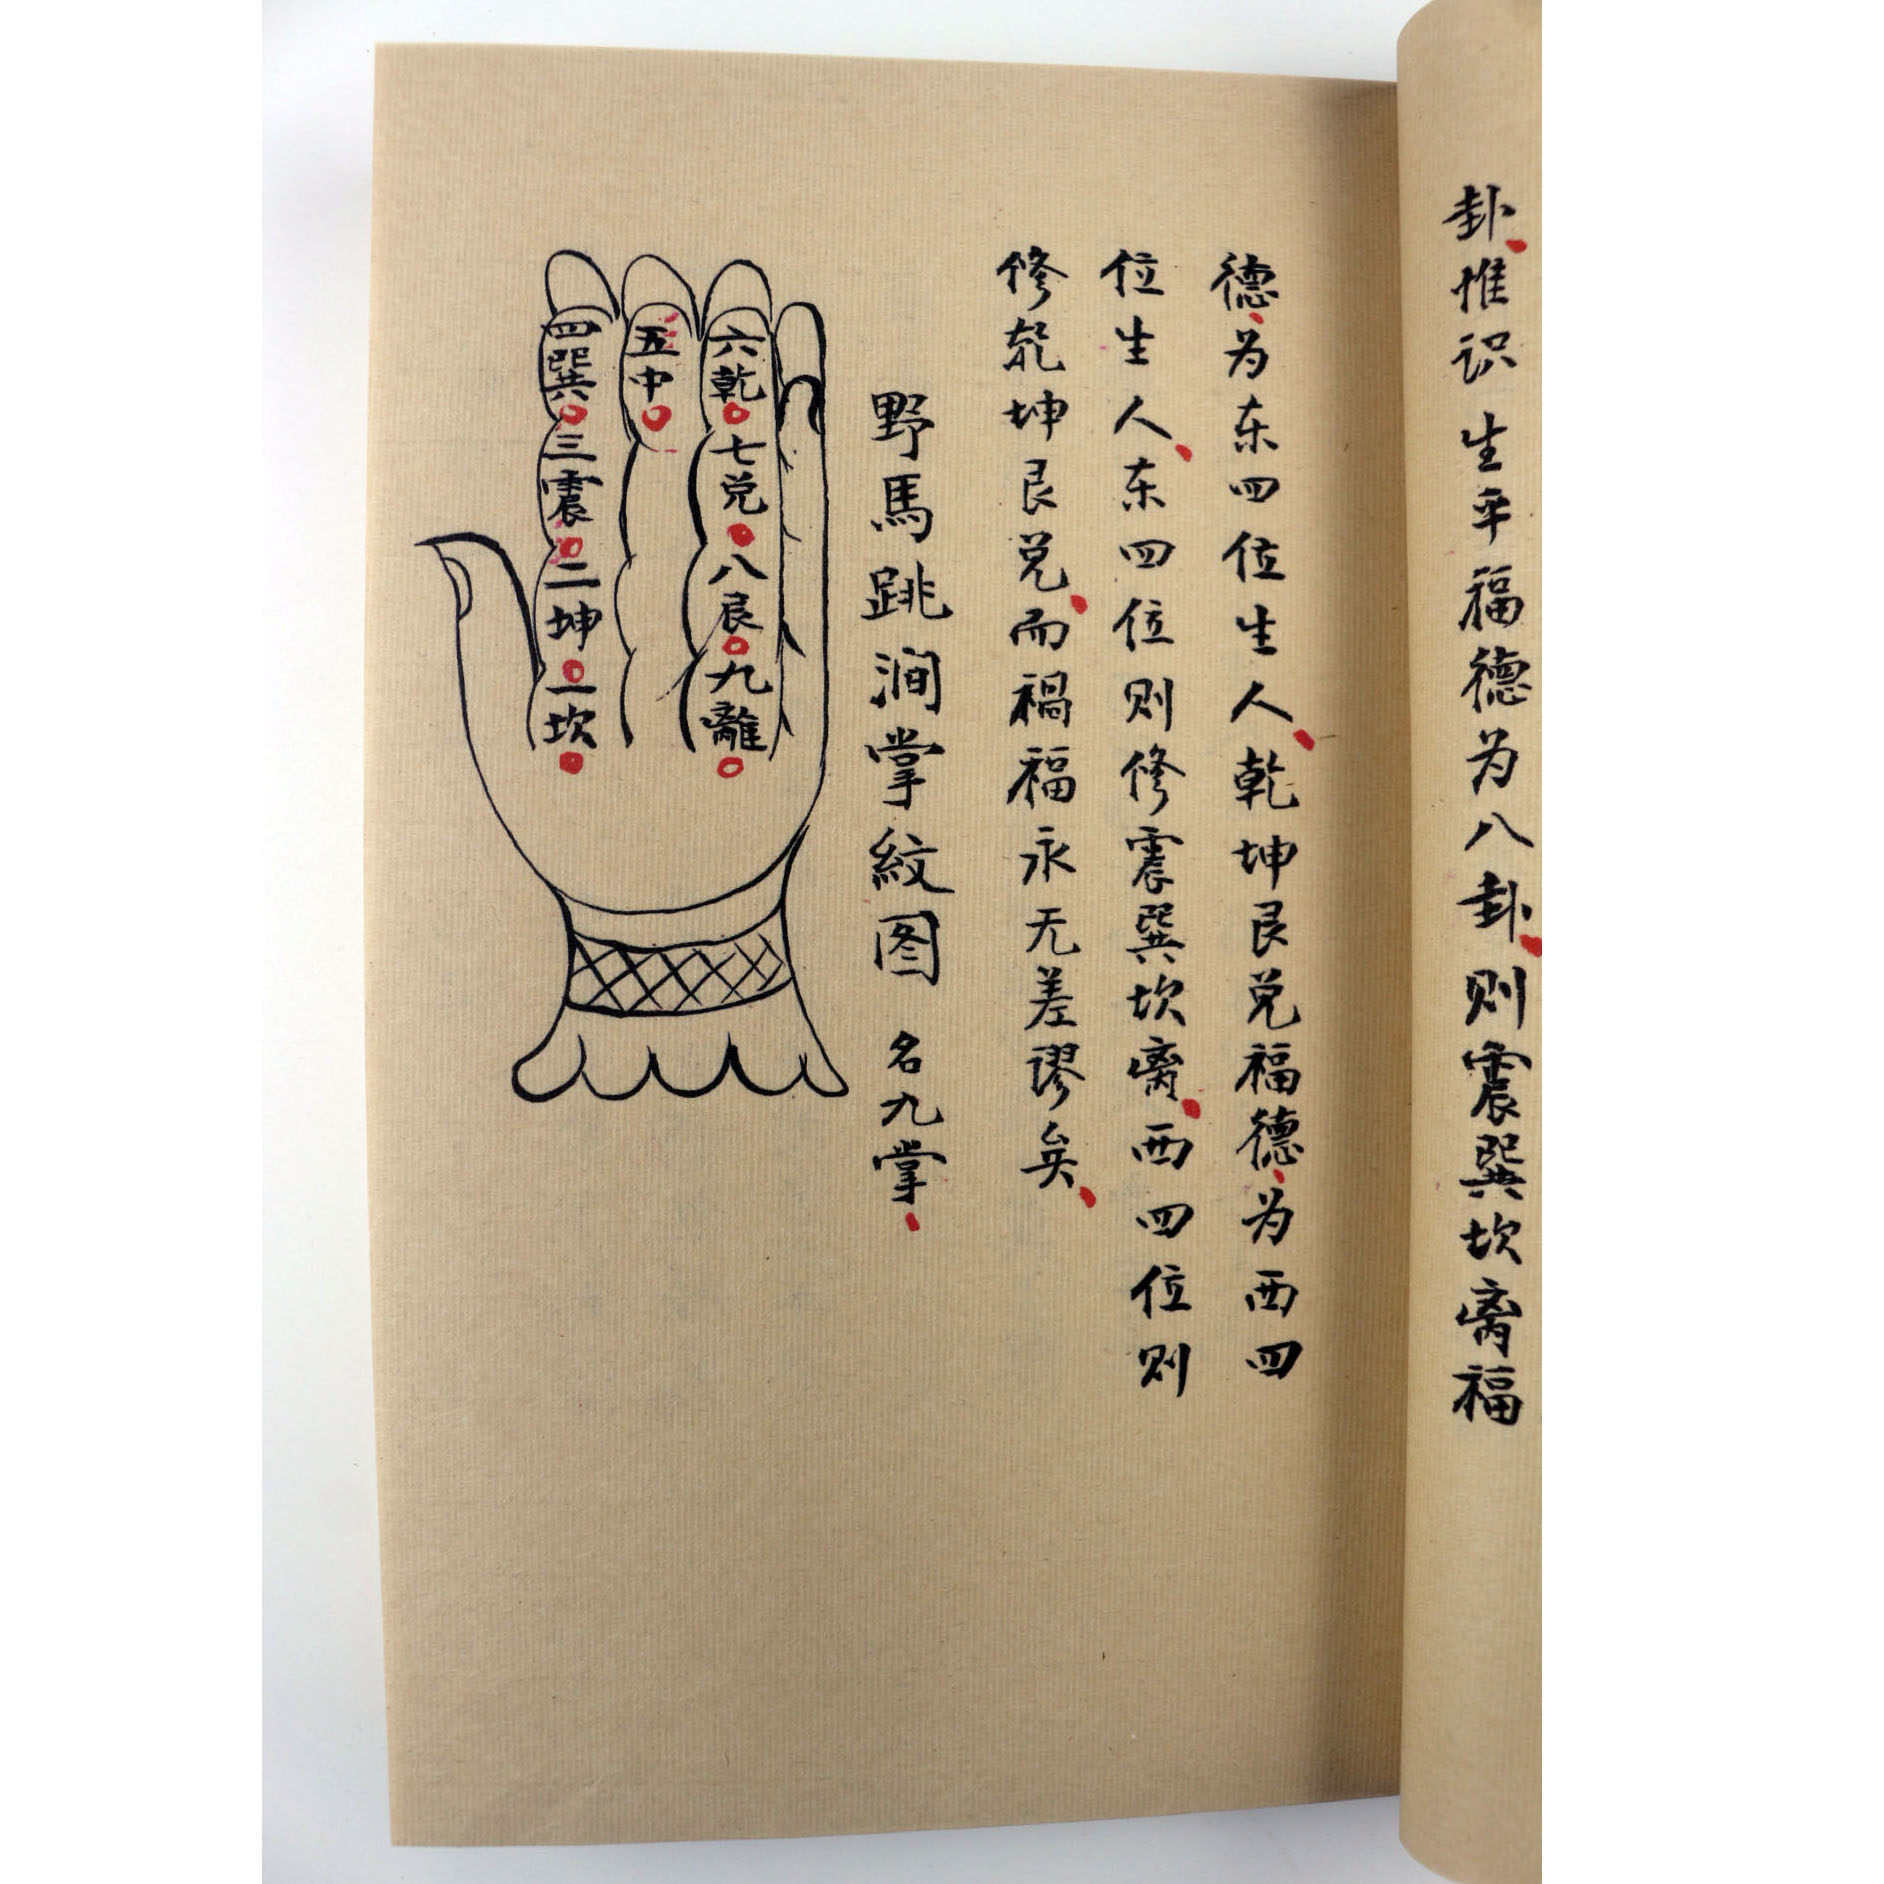 卦惟识生平福德为八卦则震巽坎离福
德为东四位生人乾坤艮兑福德为西四
位生人东四位则修震巽坎离西四位则
修乾坤艮兑而禍福永无差谬矣
野馬跳澗掌紋图 名九掌
六乾
七兑
八艮
九離
五中
四巽
三震
二坤
一坎